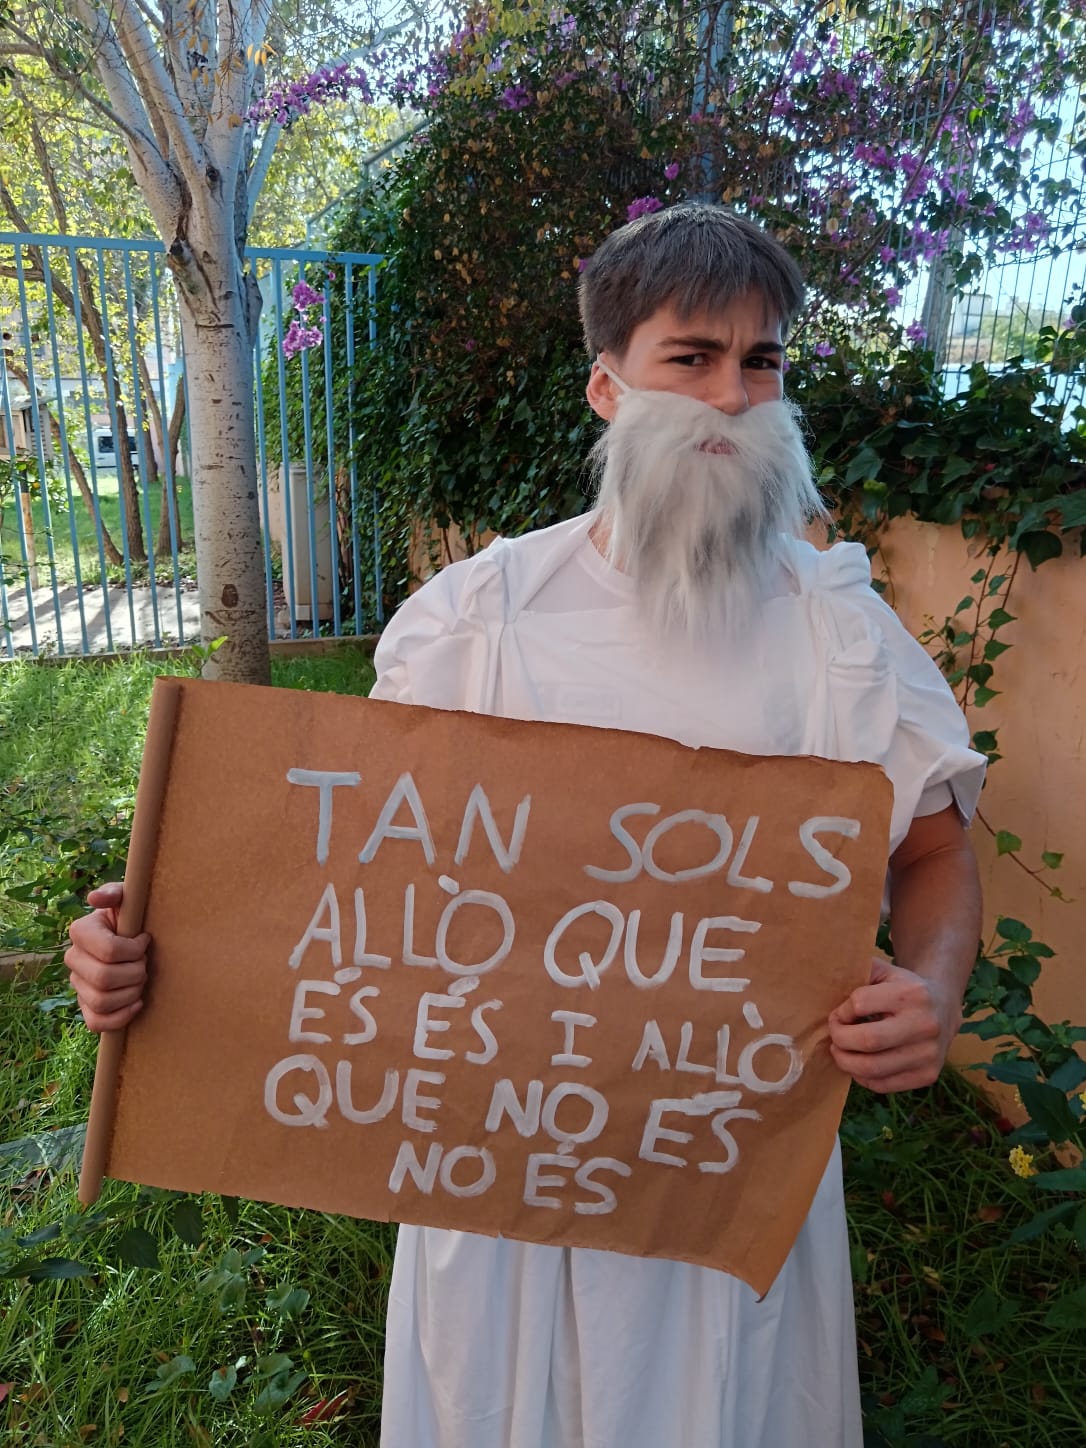 TAN SOLS
ALLÒ QUE
ÉS ÉS I ALLÒ
QUE NO ÉS
NO ÉS